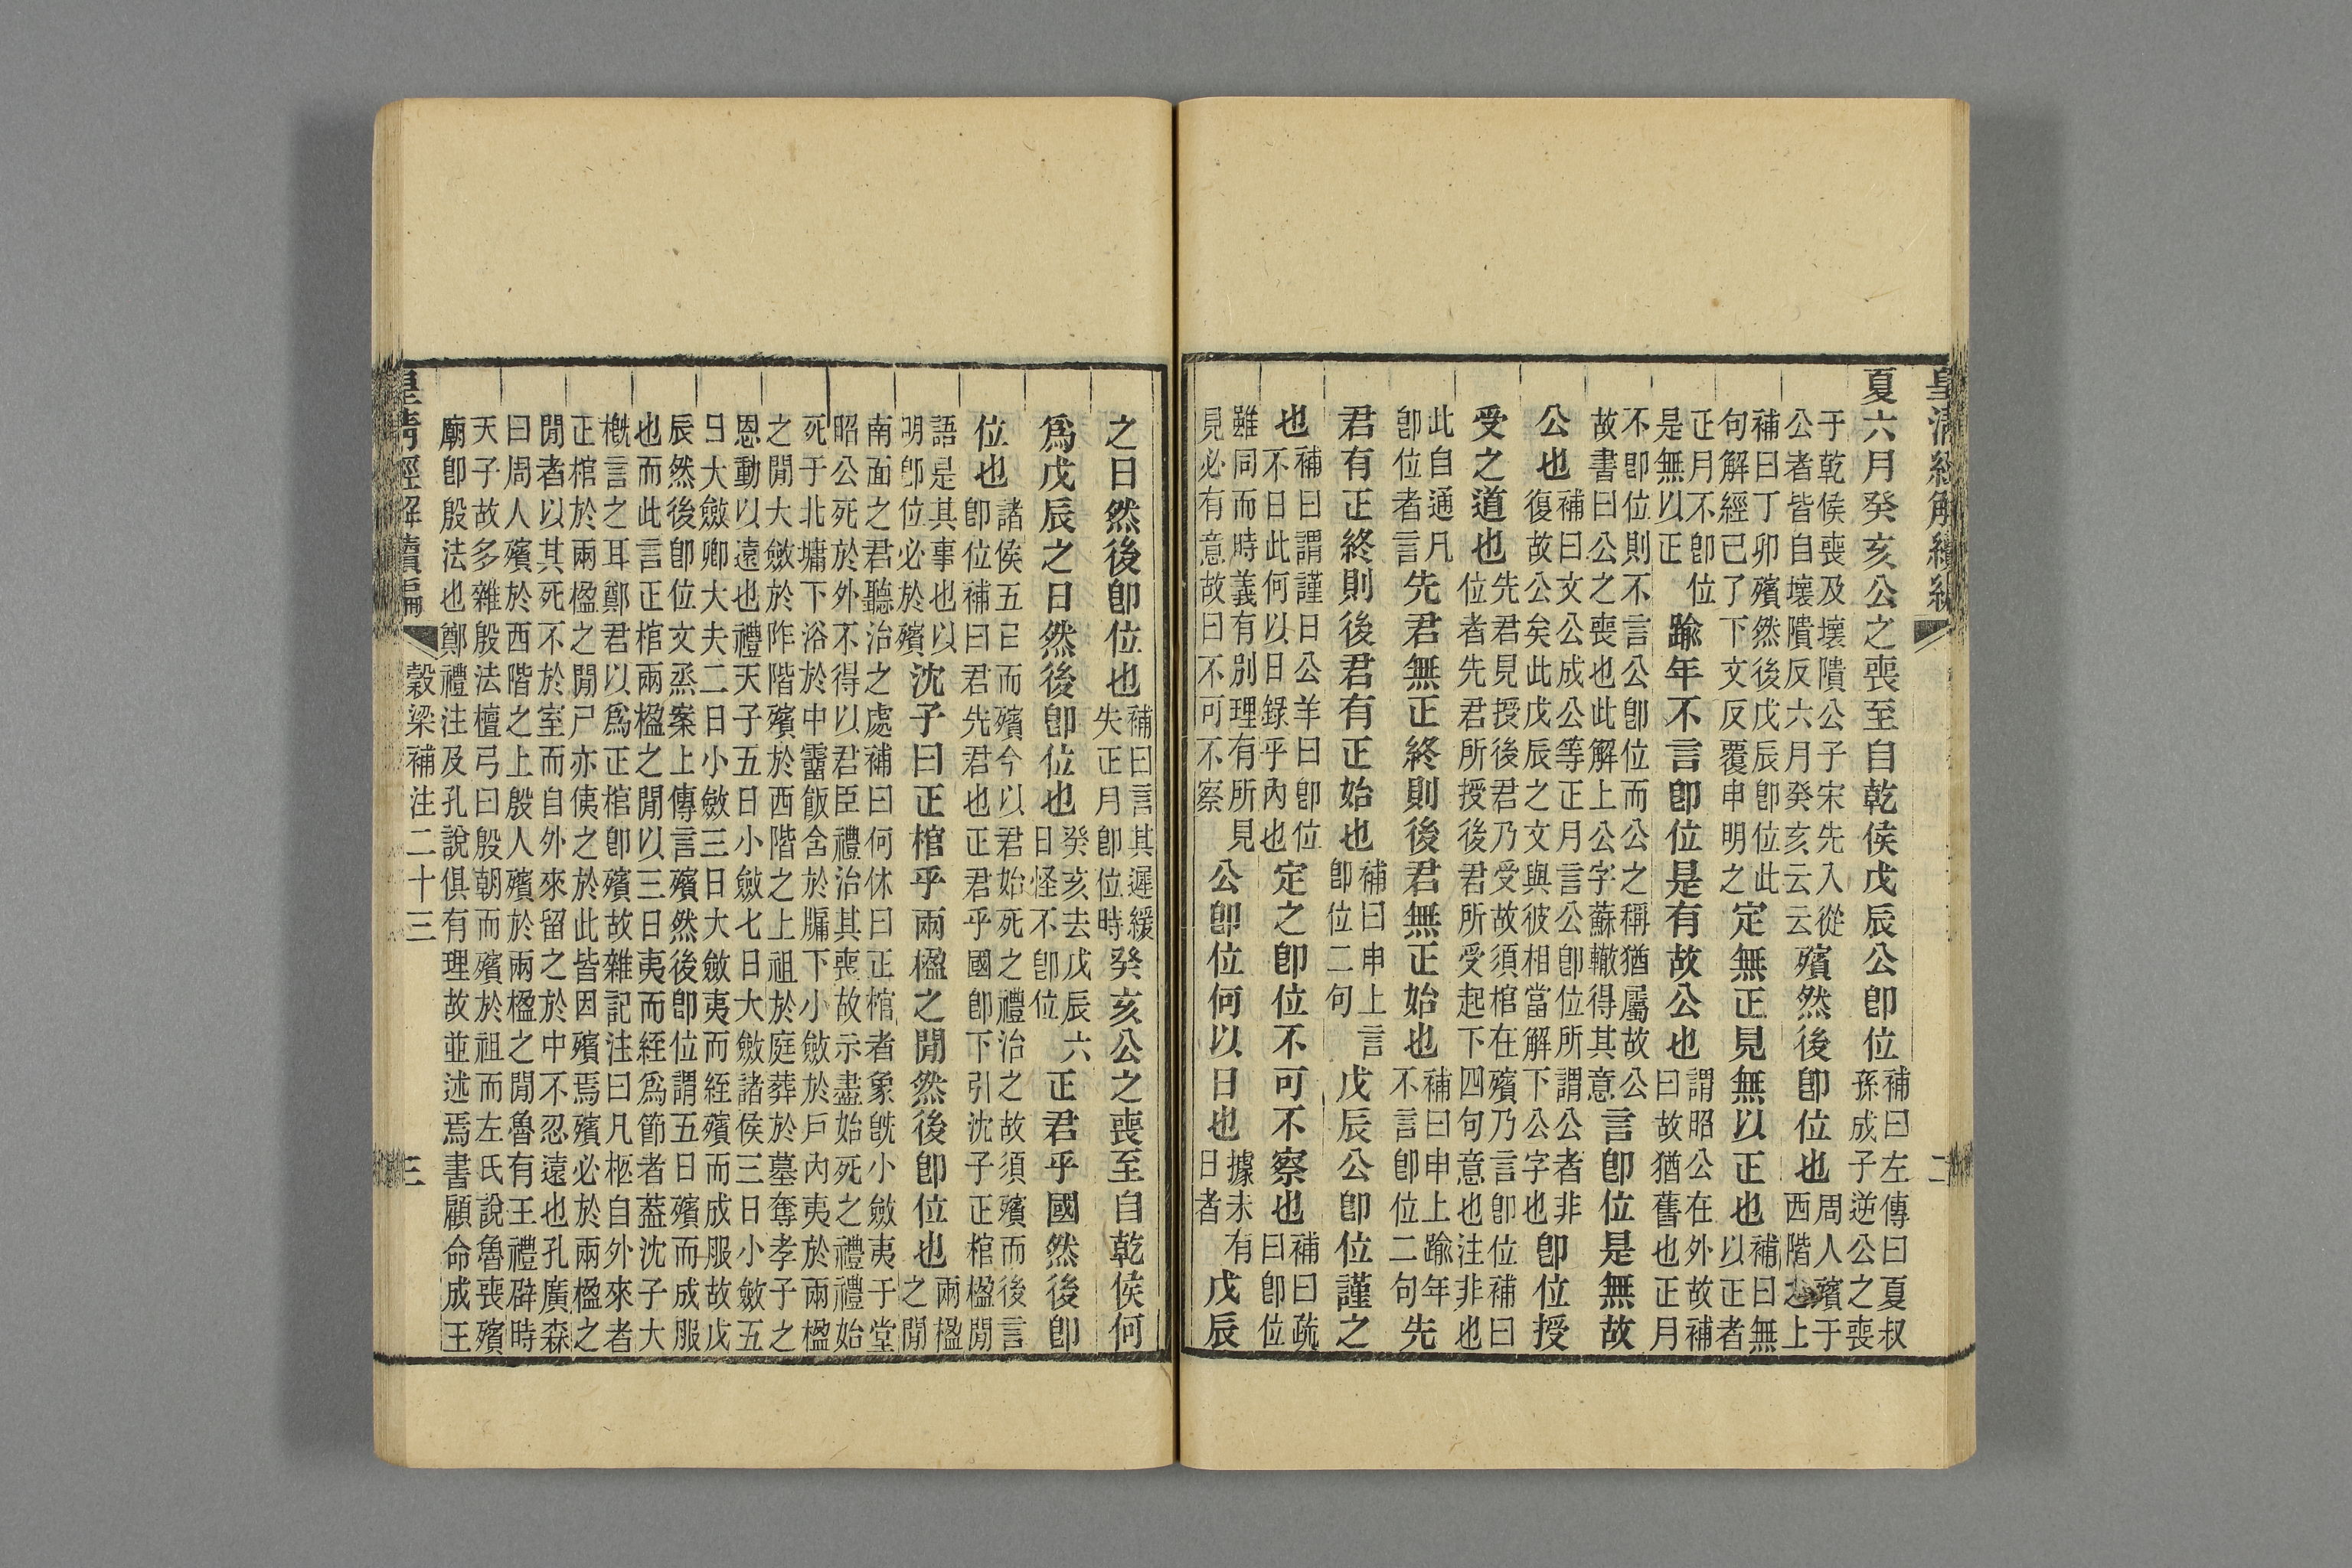 皇清經解續編 二
夏六月癸亥公之喪至自乾侯戊辰公卽位補曰左傳曰夏叔孫成子逆公之喪
于乾侯喪及壞隤公子宋先入從公者皆自壞隤反六月癸亥云云殯然後卽位也周人殯于西階之上
補曰丁卯殯然後戊辰卽位此句解經已了下文反覆申明之定無正見無以正也補曰無以正者
正月不卽位是無以正踰年不言卽位是有故公也謂昭公在外故補曰故猶舊也正月
不卽位則不言公卽位而公之稱猶屬故公故書曰公之喪也此解上公字蘇轍得其意言卽位是無故
公也補曰文公成公等正月言公卽位所謂公者非復故公矣此戊辰之文與彼相當解下公字也卽位授
受之道也先君見授後君乃受故須棺在殯乃言卽位補曰位者先君所授後君所受起下四句意也注非也
此自通凡卽位者言先君無正終則後君無正始也補曰申上踰年不言卽位二句先
君有正終則後君有正始也補曰申上言卽位二句戊辰公卽位謹之
也補曰謂謹日公羊曰卽位不日此何以日錄乎內也定之卽位不可不察也補曰疏曰卽位
雖同而時義有別理有所見見必有意故曰不可不察公卽位何以日也據未有日者戊辰
之日然後卽位也補曰言其遲緩失正月卽位時癸亥公之喪至自乾侯何
爲戊辰之日然後卽位也癸亥去戊辰六日怪不卽位正君乎國然後卽
位也諸侯五日而殯今以君始死之禮治之故須殯而後言卽位補曰君先君也正君乎國卽下引沈子正棺楹閒
語是其事也以明卽位必於殯沈子曰正棺乎兩楹之閒然後卽位也兩楹之閒
南面之君聽治之處補曰何休曰正棺者象旣小斂夷于堂昭公死於外不得以君臣禮治其喪故示盡始死之禮禮始
死于北墉下浴於中霤飯含於牖下小斂於戶內夷於兩楹之閒大斂於阼階殯於西階之上祖於庭葬於墓奪孝子之
恩動以遠也禮天子五日小斂七日大斂諸侯三日小斂五日大斂卿大夫二日小斂三日大斂夷而絰殯而成服故戊
辰然後卽位文烝案上傳言殯然後卽位謂五日殯而成服也而此言正棺兩楹之閒以三日夷而絰爲節者葢沈子大
概言之耳鄭君以爲正棺卽殯故雜記注曰凡柩自外來者正棺於兩楹之閒尸亦侇之於此皆因殯焉殯必於兩楹之
閒者以其死不於室而自外來留之於中不忍遠也孔廣森曰周人殯於西階之上殷人殯於兩楹之閒魯有王禮辟時
天子故多雜殷法檀弓曰殷朝而殯於祖而左氏說魯喪殯廟卽殷法也鄭禮注及孔說俱有理故並述焉書顧命成王
皇清經解續編 穀梁補注二十三 三